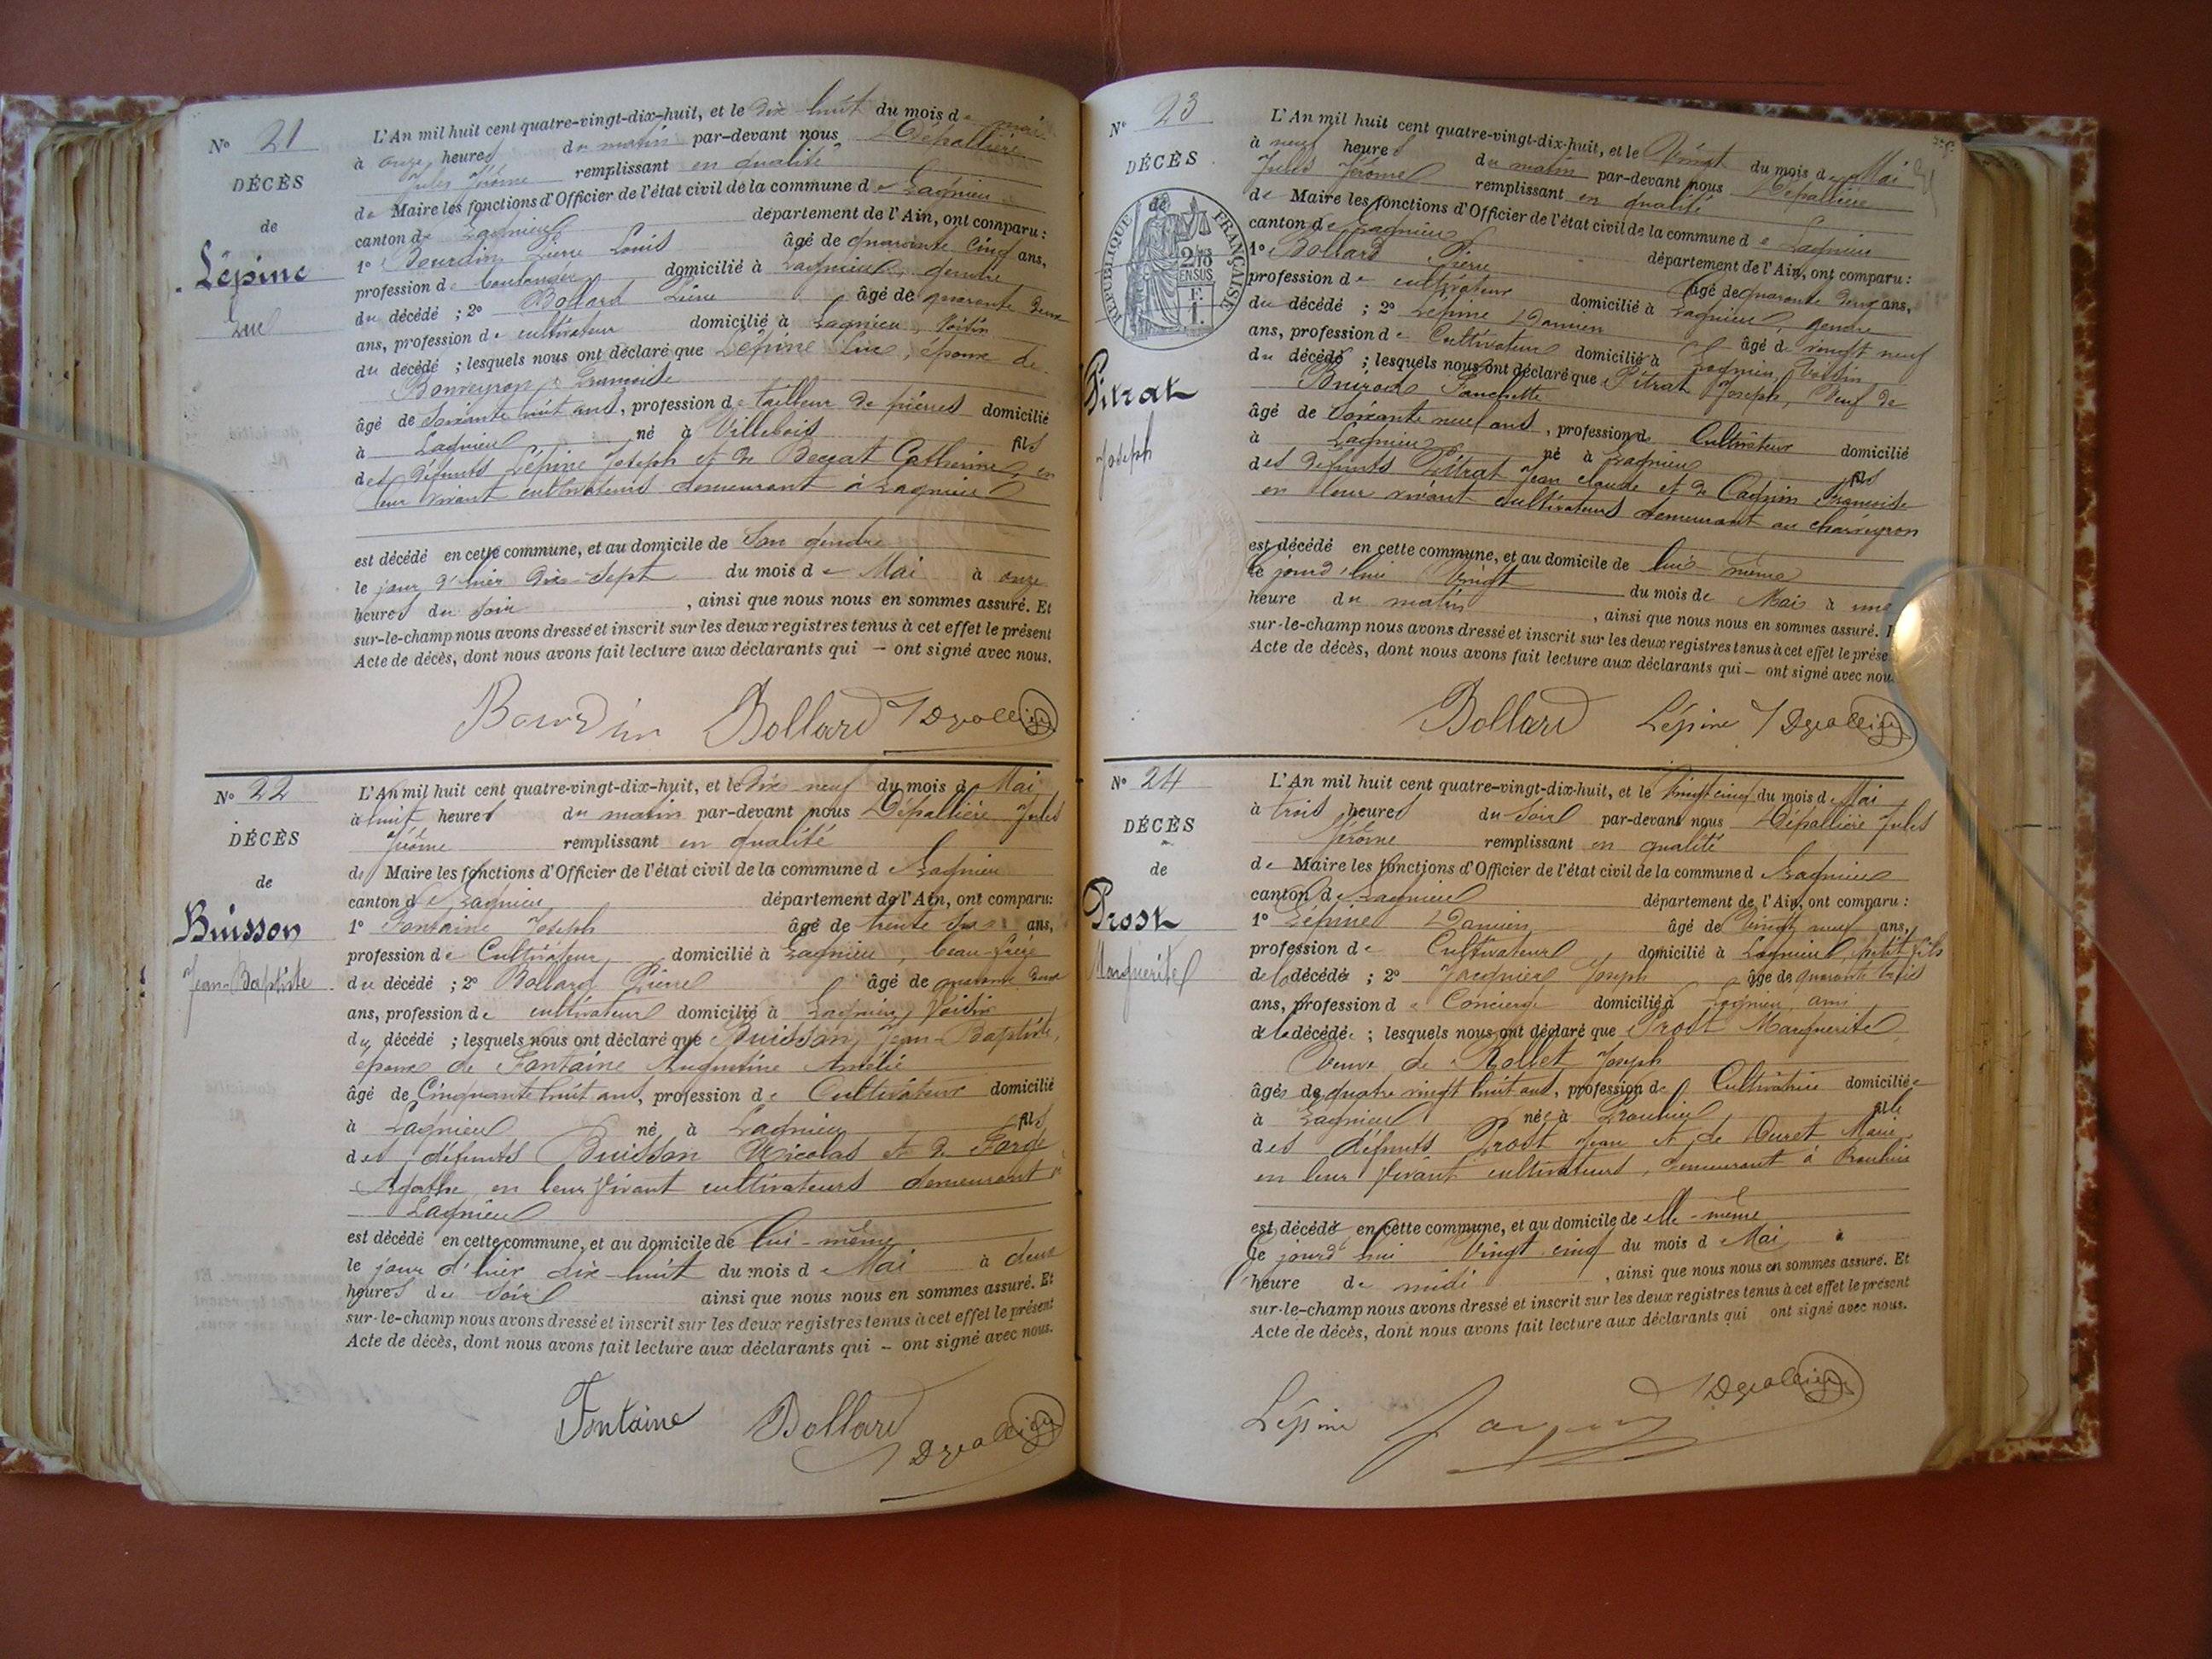 N° 21
DÉCÈS
de
Lépine
Luc
L'An mil huit cent quatre-vingt-dix-huit, et le dix huit du mois de mai
à onze heures du matin par-devant nous Dépallière
Jules Jérôme remplissant en qualité
de Maire les fonctions d'Officier de l'état civil de la commune de Lagnieu
canton de Lagnieu département de l'Ain, ont comparu :
1° Bourdin Pierre Louis âgé de quarante cinq ans,
profession de boulanger domicilié à Lagnieu, gendre
du décédé ; 2° Bollard Pierre âgé de quarante deux
ans, profession de cultivateur domicilié à Lagnieu, voisin
du décédé ; lesquels nous ont déclaré que Lépine Luc, époux de
Bonveyron Françoise
âgé de soixante huit ans, profession de tailleur de pierres domicilié
à Lagnieu né à Villebois fils
des défunts Lépine Joseph et de Catherine, en
leur vivant cultivateurs demeurant à Lagnieu
est décédé en cette commune, et au domicile de son gendre
le jour d'hier dix-sept du mois de Mai à onze
heures du soir, ainsi que nous nous en sommes assuré. Et
sur-le-champ nous avons dressé et inscrit sur les deux registres tenus à cet effet le présent
Acte de décès, dont nous avons fait lecture aux déclarants qui – ont signé avec nous.
Bourdin Bollard
N° 22
DÉCÈS
de
Buisson
Jean-Baptiste
L'An mil huit cent quatre-vingt-dix-huit, et le dix neuf du mois de Mai
à huit heures du matin par-devant nous Dépallière Jules
Jérôme remplissant en qualité
de Maire les fonctions d'Officier de l'état civil de la commune d Lagnieu
canton de Lagnieu département de l'Ain, ont comparu:
1° Fontaine Joseph âgé de trente ans,
profession de Cultivateur domicilié à Lagnieu, beau-frère
du décédé ; 2° Bollard Pierre âgé de quarante deux
ans, profession de cultivateur domicilié à Lagnieu, voisin
du décédé ; lesquels nous ont déclaré que Buisson Jean-Baptiste,
époux de Fontaine Augustine Amélie
âgé de Cinquante huit ans, profession de Cultivateur domicilié
à Lagnieu né à Lagnieu fils
des défunts Buisson Nicolas et de Forge
Agathe, en leur vivant cultivateurs demeurant à
Lagnieu
est décédé en cette commune, et au domicile de lui-même
le jour d'hier dix-huit du mois de Mai à deux
heures du soir ainsi que nous nous en sommes assuré. Et
sur-le-champ nous avons dressé et inscrit sur les deux registres tenus à cet effet le présent
Acte de décès, dont nous avons fait lecture aux déclarants qui – ont signé avec nous.
Fontaine Bollard
N° 23
DÉCÈS
de
RÉPUBLIQUE FRANÇAISE
2/10
EN SUS
Pitrat
Joseph
L'An mil huit cent quatre-vingt-dix-huit, et le Vingt du mois de Mai
à neuf heures du matin par-devant nous Dépallière
Jules Jérôme remplissant en qualité
de Maire les fonctions d'Officier de l'état civil de la commune de Lagnieu
canton de Lagnieu département de l'Ain, ont comparu :
1° Bollard Pierre âgé de quarante deux ans,
profession de cultivateur domicilié à Lagnieu, gendre
du décédé ; 2° Lépine Damien âgé de vingt neuf
ans, profession de Cultivateur domicilié à Lagnieu, voisin
du décédé ; lesquels nous ont déclaré que Pitrat Joseph, Veuf de
Fanchette
âgé de Soixante neuf ans, profession de Cultivateur domicilié
à Lagnieu né à Lagnieu fils
des défunts Pitrat Jean claude et de Françoise
en leur vivant cultivateurs demeurant au charveyron
est décédé en cette commune, et au domicile de lui-même
le jourd'hui Vingt du mois de Mai à une
heure du matin, ainsi que nous nous en sommes assuré.
sur-le-champ nous avons dressé et inscrit sur les deux registres tenus à cet effet le prése
Acte de décès, dont nous avons fait lecture aux déclarants qui – ont signé avec nou
Bollard Lépine
N° 24
DÉCÈS
de
Prost
Marguerite
L'An mil huit cent quatre-vingt-dix-huit, et le Vingt cinq du mois de Mai
à trois heures du soir par-devant nous Dépallière Jules
Jérôme remplissant en qualité
de Maire les fonctions d'Officier de l'état civil de la commune d Lagnieu
canton de Lagnieu département de l'Ain, ont comparu :
1° Lépine Damien âgé de Vingt neuf ans,
profession de Cultivateur domicilié à Lagnieu, petit fils
de la décédée ; 2° Jacquier Joseph âgé de quarante trois
ans, profession de Concierge domicilié à Lagnieu, ami
de la décédée ; lesquels nous ont déclaré que Prost Marguerite,
Veuve de Rollet Joseph
âgée de quatre vingt huit ans, profession de Cultivatrice domiciliée
à Lagnieu née à fille
des défunts Prost Jean et de Marie
en leur vivant cultivateurs, demeurant à
est décédée en cette commune, et au domicile de elle-même
le jourd'hui Vingt cinq du mois de Mai à
heure de midi, ainsi que nous nous en sommes assuré. Et
sur-le-champ nous avons dressé et inscrit sur les deux registres tenus à cet effet le présent
Acte de décès, dont nous avons fait lecture aux déclarants qui ont signé avec nous.
Lépine